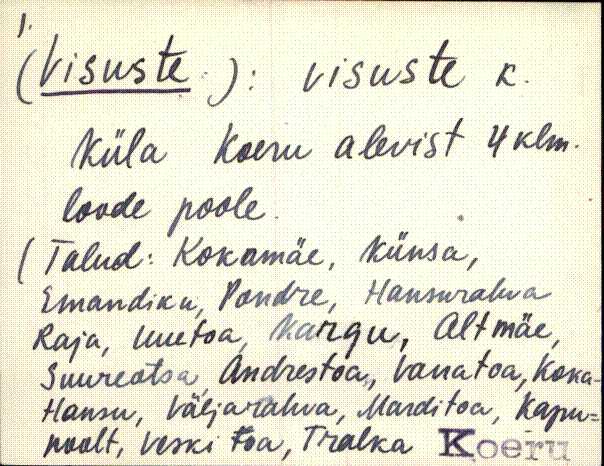 1.
(Visuste.): Visuste k.
Küla Koeru alevist 4 klm.
loode poole.
(Talud: Kokamäe, Künsa,
Emandiku, Pondre, Hansurahva
Raja, Uuetoa, Kargu, Altmäe,
Suureotsa, Andrestoa, Vanatoa, Koka-
Hansu, Väljarahva, Marditoa, Kapu=
noolt, Veski toa, Tralka Koeru